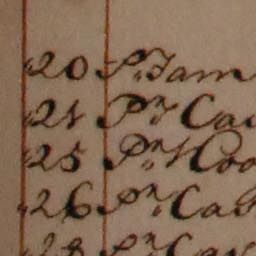 20 Pr. Jam
21 Pr. Ca
25 Pr. Coo
26 Pr. Ca
28 Pr. Ca